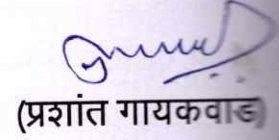 (प्रशांत गायकवाड)